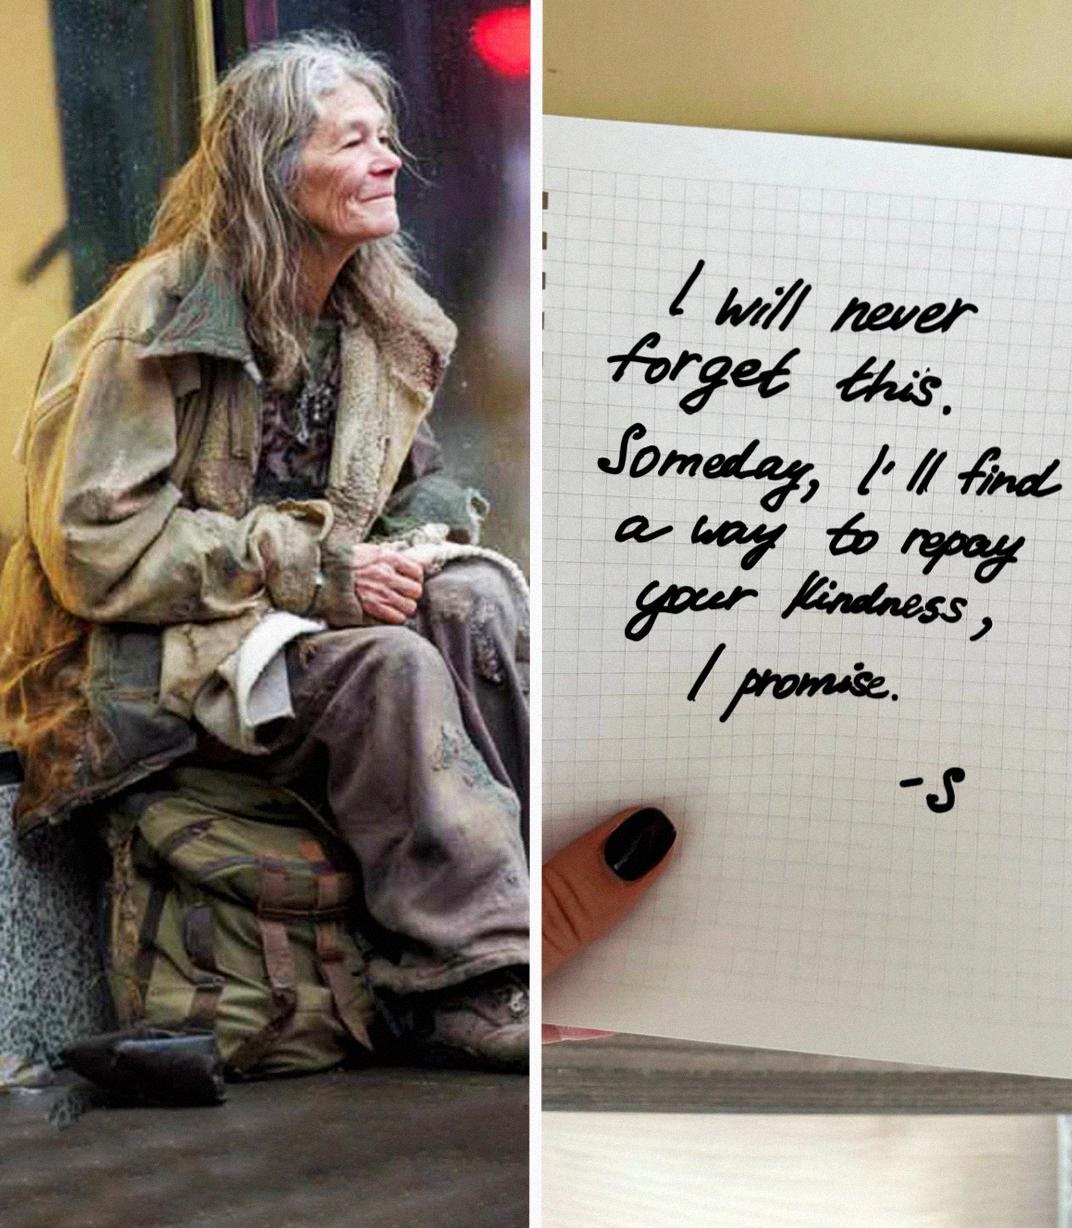 I will never
forget this.
Someday, I'll find
a way to repay
your kindness,
I promise.
-S